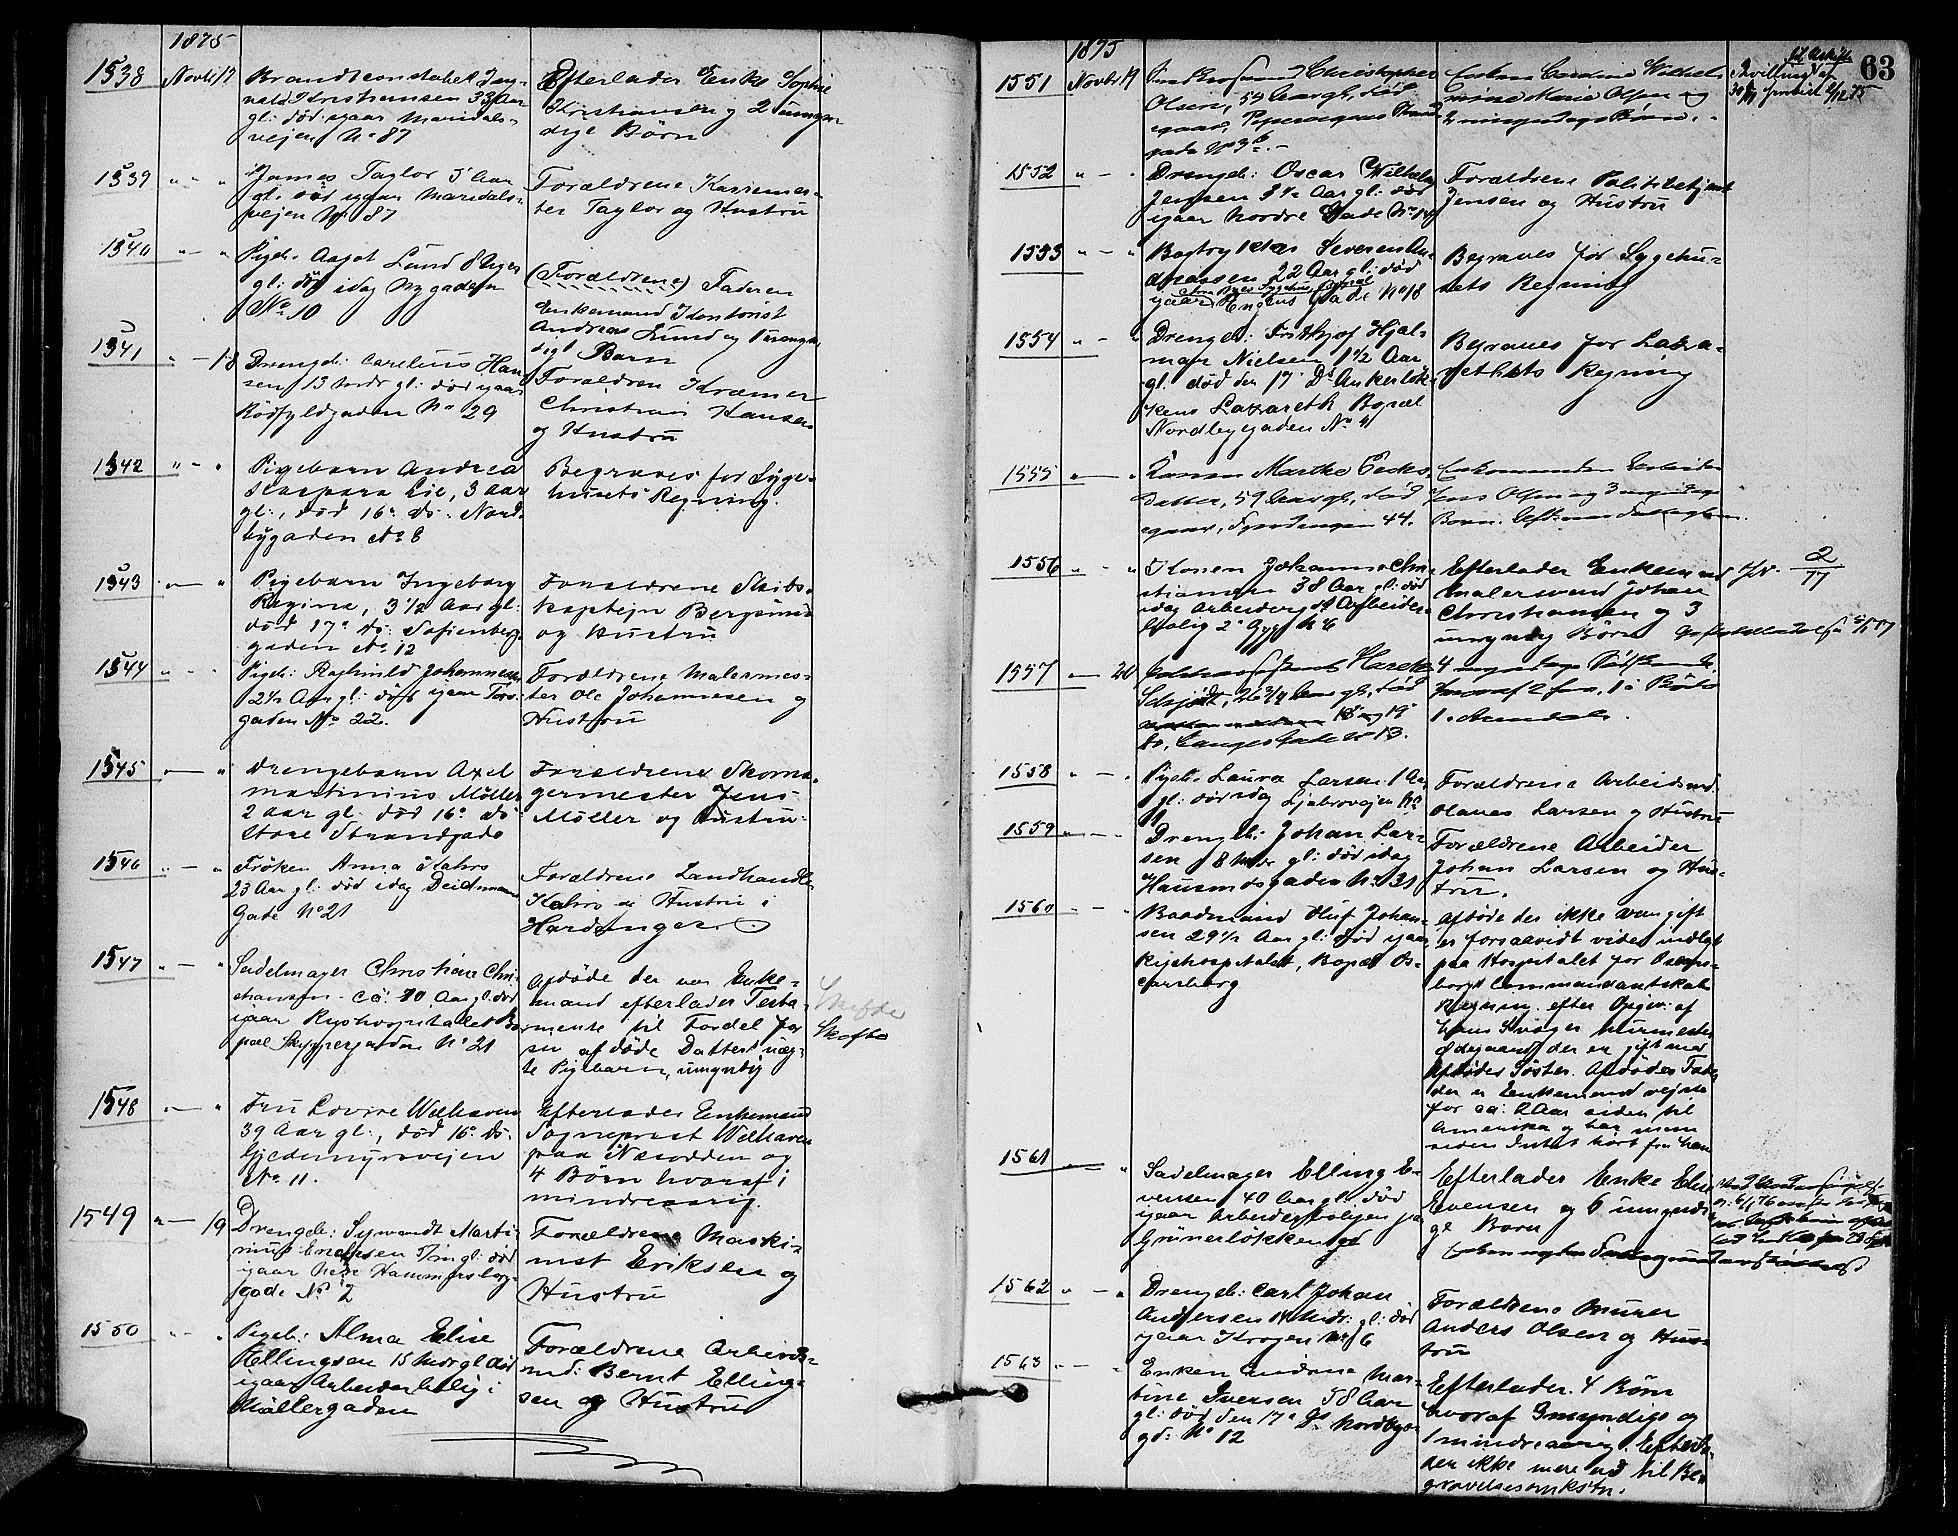 1875
1538 Novbr 17 Brandtconstabel Reg-
nald Kristiansen 33 Aar
gl: død igaar Maridals-
vejen No 87
Efterlader Enke Sophie
Kristiansen og 2 umyn-
dige Børn
1539 " " " James Taylor 5 Aar
gl. død igaar Maridals-
vejen No 87
Forældrene
ter Taylor og Hustru
1540 " " Pigeb. Aagot Lund 8 Uger
gl: død idag Nygaden
No 10
(Forældrene) Faderen
Enkemand Kontorist
Andreas Lund og Umyn-
digt Barn
1541 " — 18 Drengeb: Carelius Han-
sen 13 Mdr gl: død igaar
Rødfyldgaden No 29
Forældren Kræmer
Christian Hansen
og Hustru
1542 " — " Pigebarn Andrea
Kaspara Lie, 3 Aar
gl:, død 16de ds: Nord-
bygaden No 8
Begraves for Syge-
husets Regning.
1543 " — " Pigebarn Ingeborg
Regina, 3 1/2 Aar gl:
død 17de ds: Sofienberg-
gaden No 12
Forældrene Skibs-
kaptejn Bergsund
og Hustru
1544 " — " Pigeb: Ragnhild Johannesen
2 1/2 Aar gl: død igaar Tors-
gaden No 22.
Forældrene Malermes-
ter Ole Johannesen og
Hustru
1545 " — " Drengebarn Axel
Martinius Møller
2 Aar gl: død 16de ds
Store Strandgade
Forældrene Skoma-
germester Jens
Møller og Hustru
1546 " — " Frøken Anna Kahrs
23 Aar gl: død idag Deichmans
Gade No 21
Forældrene Landhandler
Kahrs og Hustru i
Hardanger.
1547 " — " Sadelmager Christian Chri-
stiansen ca: 70 Aar gl: død
igaar Rigshospitalet Bo-
pæl Skippergaden No 21
Afdøde der var Enke-
mand efterlader Testa-
mente til Fordel for
sin afdøde Datters uæg-
te Pigebarn, umyndig
Skifte
Skifte
1548 " — " Fru Lovise Welhaven
39 Aar gl:, død 16de ds.
Gjedemyrsvejen
No. 11.
Efterlader Enkemand
Sogneprest Welhaven
paa Næsodden og
4 Børn hvoraf 1
mindreaarig.
1549 " — 19 Drengeb: Syvendt Marti-
nius Eriksen gl: død
igaar Nedre Hammersborg-
gade No 2
Forældrene Maski-
nist Eriksen og
Hustru
1550 " — " Pigeb: Alma Elise
Ellingsen 15 Mdr gl død
igaar Arbeiderbolig i
Møllergaden
Forældrene Arbeids-
md: Bernt Elling-
sen og Hustru
1875
63
1551 Novbr 19 Christopher
Olsen, 54 Aar gl, død
igaar, Pipervigens Strand-
gade No 3 b. -
Enken Wilhel-
mine Marie Olsen og
2 myndige Børn.
1552 " — " Drengeb: Oscar Wilhelm
Jensen 3 1/2 Aar gl: død
igaar Nordre Gade No 14
Forældrene Politibetjent
Jensen og Hustru
1553 " — " Bogtrykker Seversen An-
dreassen 22 Aar gl: død
igaar Sygehus, Bopæl
Engens gade No 18
Begraves for Sygehu-
sets Regning
1554 " — " Drengeb: Frithjof Hjal-
mar Nielsen 1 1/2 Aar
gl. død den 17de Ds Ankerløk-
kens Lazareth Bopæl
Nordbygaden No 41
Begraves for Laza-
rethets Regning
1555 " — " Konen Marthe
datter, 59 Aar gl, død
igaar, 44.
Enkemanden Arbeider
Jens Olsen og 3 myndige
Børn.
1556 " — " Konen Johanne Chri-
stiansen 38 Aar gl: død
idag Arbeidergd Arbeider-
bolig 2de Opg No 6
Efterlader Enkemand
Malersvend Johan
Christiansen og 3
umyndig Børn
2/17
1557 — 20 Harek
26 3/4 Aar gl, død
18 og 19
ds, Langes Gade No 13.
4 myndige Sødskende
hvoraf 2 her, 1 i
1 i Arendal.
1558 " — " Pigeb. Laura Larsen 1 Aar
gl: død idag Ljabrovejen No
11
Forældrene Arbeidsmd
Olaves Larsen og Hustru
1559 " — " Drengeb: Johan Lar-
sen 8 Mdr gl: død idag
Hausmdsgaden No 31
Forældrene Arbeider
Johan Larsen og Hus-
tru.
1560 " — " Baadsmand Oluf Johan-
sen 29 1/2 Aar gl: død igaar
Rigshospitalet, Bopæl Os-
carsborg
Afdøde der ikke var gift
er forsaavidt vides indlagt
paa Hospitalet for Oscars-
borgs Commandantskabs
Regning efter Opgiv: af
hans Svoger Murmester
Ødegaard der er gift med
Afdødes Søster. Afdødes Fader
der er Enkemand rejste
for ca: 2 Aar siden til
Amerika og har man
siden Intet hørt fra ham
1561 " Sadelmager Elling E-
vensen 40 Aar gl død
igaar Arbeiderboligen paa
Grünerløkken
Efterlader Enke Elise
Evensen og 6 umyndi-
ge Børn
1562 " — " Drengeb: Carl Johan
Andersen 14 Mdr: gl: død
igaar Krogen No 6
Forældrene Murer
Anders Olsen og Hus-
tru
1563 " — " Enken Andrine Mar-
tine Iversen 58 Aar
gl: død den 17de Ds Nordby-
gd: No 12
Efterlader 4 Børn
hvoraf 3 myndige og
1 mindreaarig. Efterla-
der ikke mere end til Be-
gravelsesomkstn.